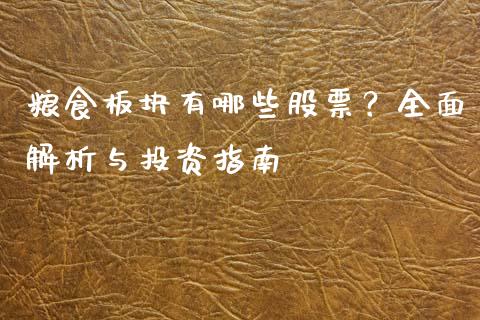 粮食板块有哪些股票？全面
解析与投资指南